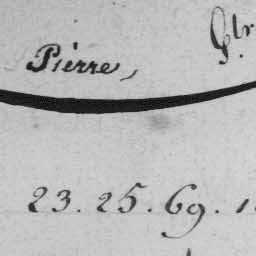 Pierre,
23. 25. 69. 1